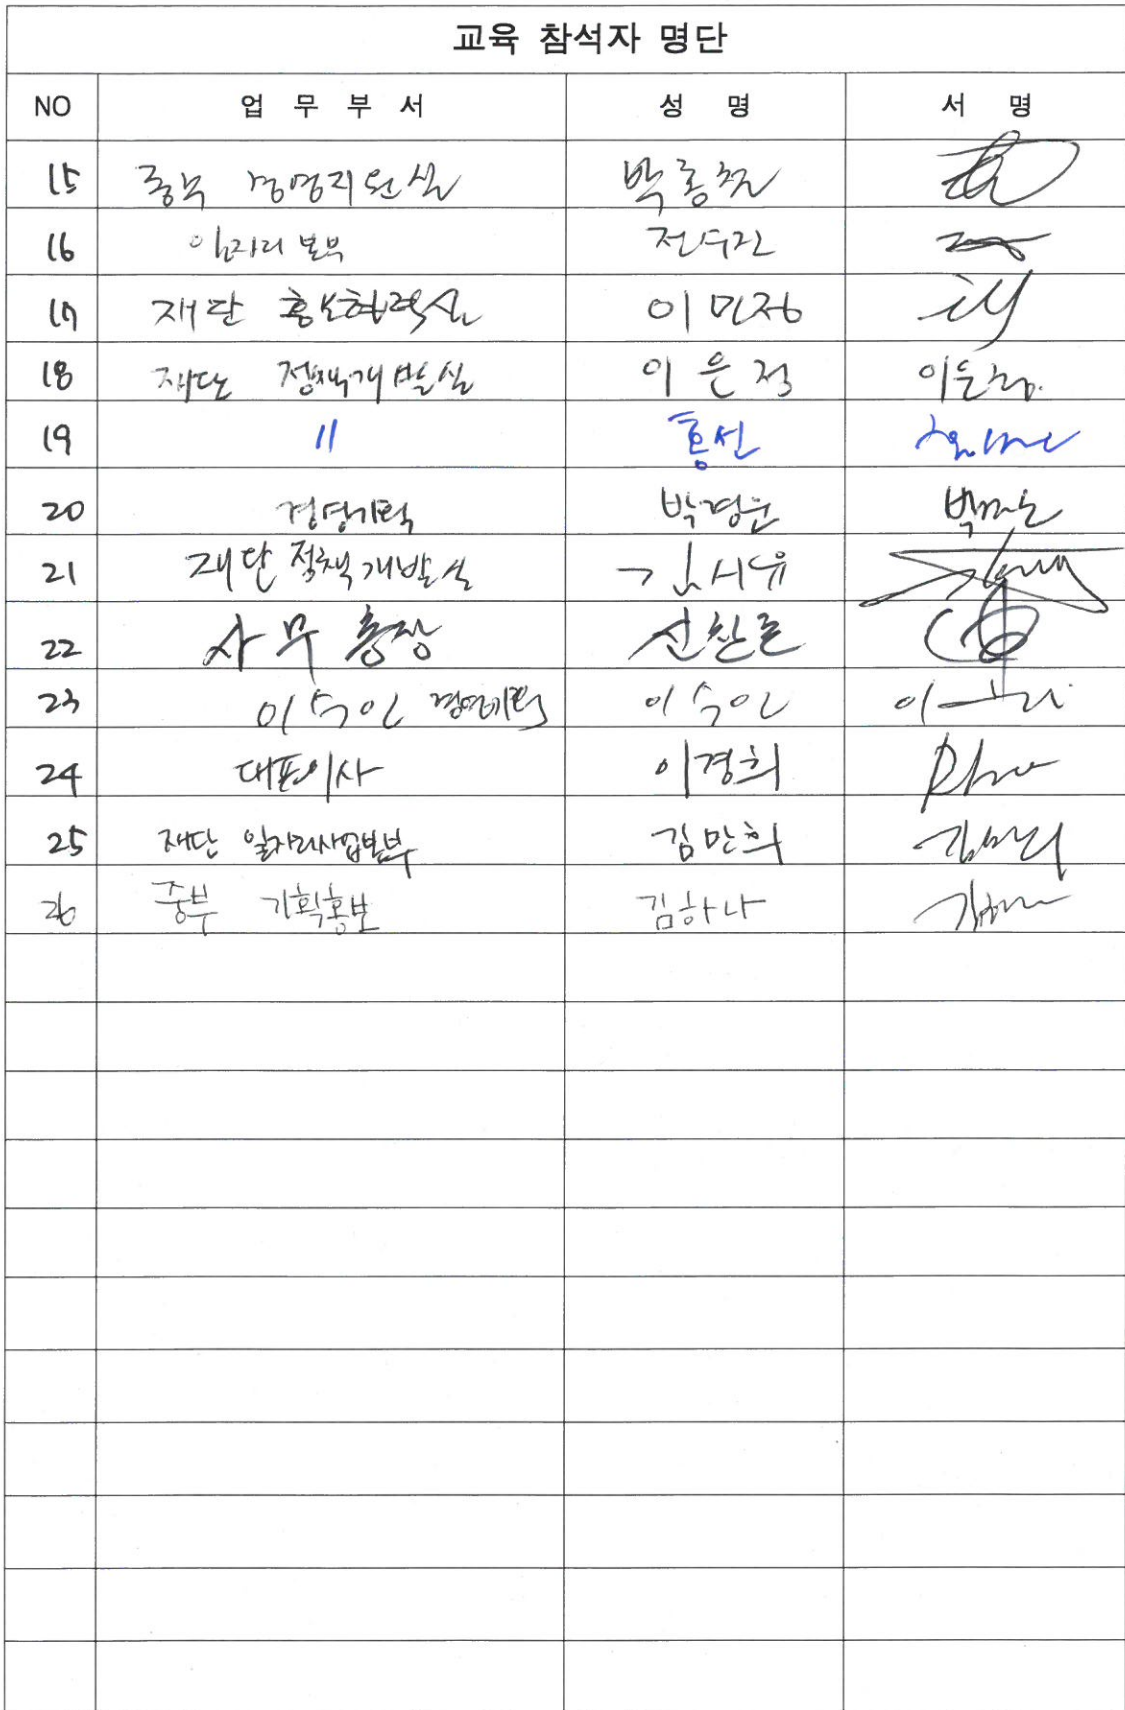 교육 참석자 명단
NO 업 무 부 서 성 명 서 명
15 중부 경영지원실
16 일자리 본부
17 재단 홍보협력실 이민정
18 재단 정책개발실 이은정 이은정
19 〃 홍선
20 경영기획 박경윤
21 재단 정책개발실 김시유
22 사무총장
23 이수인 경영기획 이수인
24 대표이사 이경희
25 재단 일자리사업본부 김만희
26 중부 기획홍보 김하나